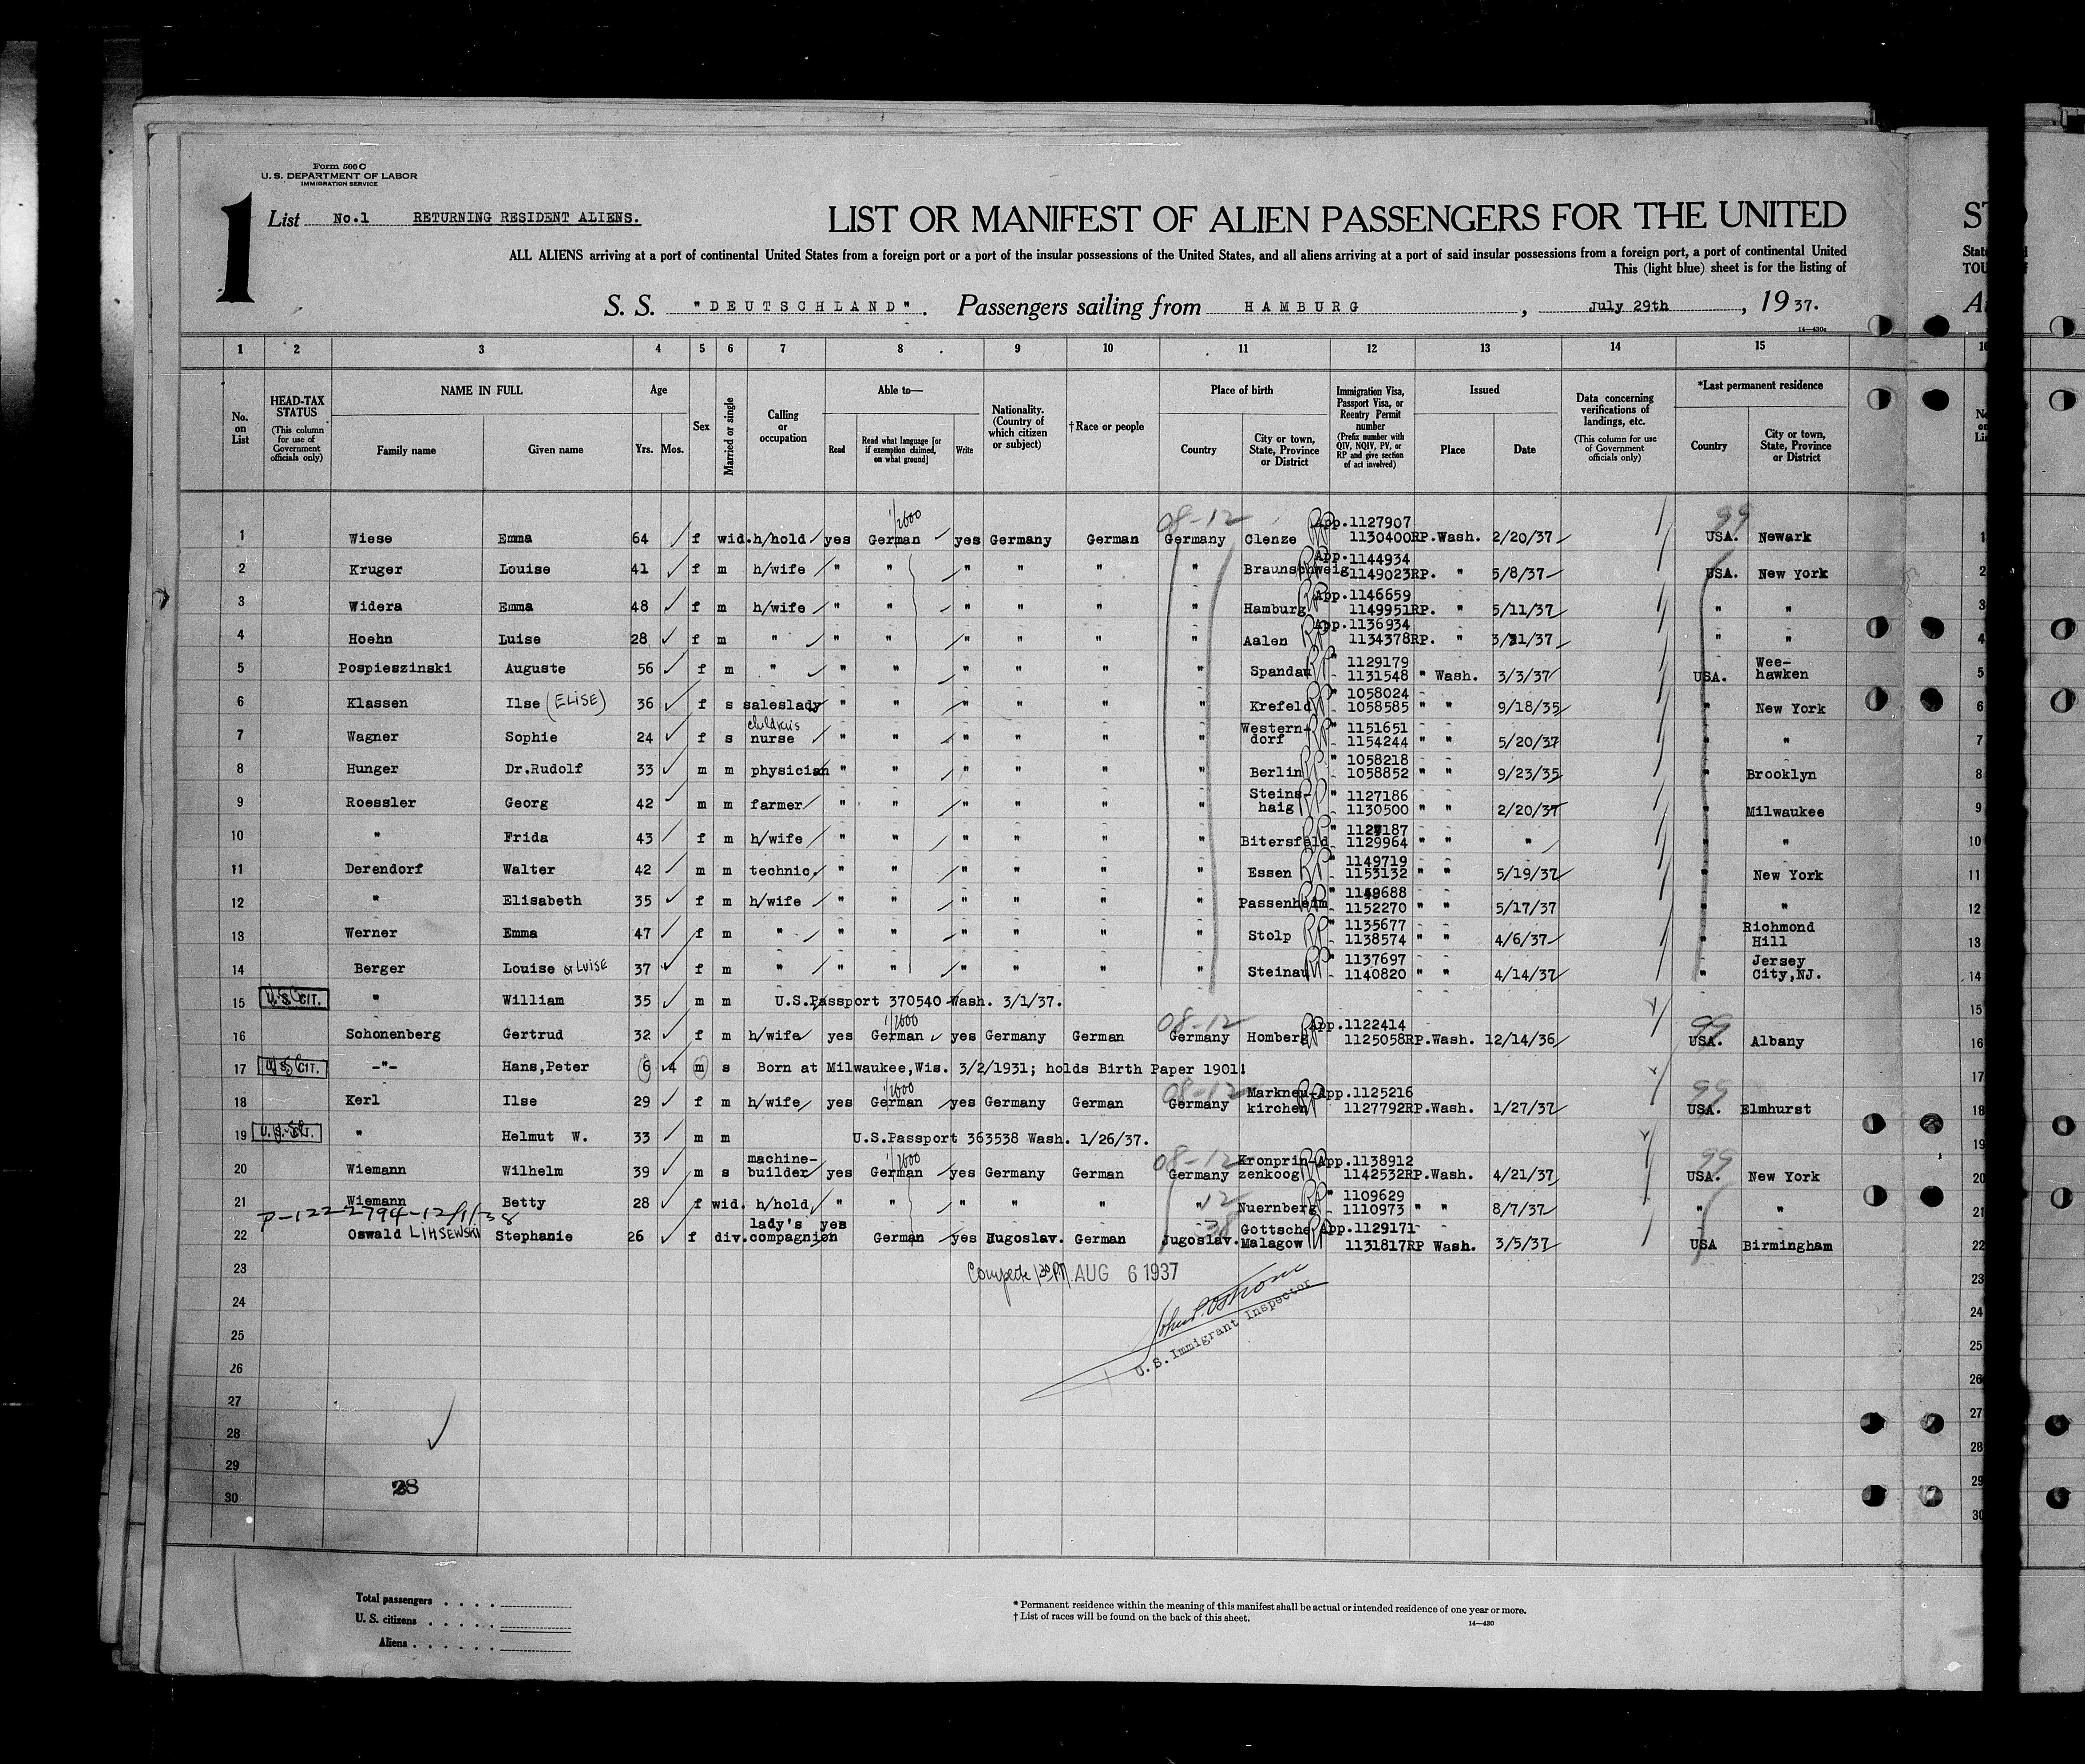 Form 500 C
U. S. DEPARTMENT OF LABOR
IMMIGRATION SERVICE
1
List No.1 RETURNING RESIDENT ALIENS.
LIST OR MANIFEST OF ALIEN PASSENGERS FOR THE UNITED
ALL ALIENS arriving at a port of continental United States from a foreign port or a port of the insular possessions of the United States, and all aliens arriving at a port of said insular possessions from a foreign port, a port of continental United
This (light blue) sheet is for the listing of
S. S. "DEUTSCHLAND". Passengers sailing from HAMBURG, July 29th, 1937.
14—430c
1 2 3 4 5 6 7 8 9 10 11 12 13 14 15
No. on List
HEAD-TAX STATUS (This column for use of Government officials only)
NAME IN FULL Family name Given name
Age Yrs. Mos.
Sex
Married or single
Calling or occupation
Able to— Read Read what language [or if exemption claimed, on what ground] Write
Nationality. (Country of which citizen or subject)
†Race or people
Place of birth Country City or town, State, Province or District
Immigration Visa, Passport Visa, or Reentry Permit number (Prefix number with QIV, NQIV, PV, or RP and give section of act involved)
Issued Place Date
Data concerning verifications of landings, etc. (This column for use of Government officials only)
*Last permanent residence Country City or town, State, Province or District
1 Wiese Emma 64 f wid. h/hold yes German yes Germany German 08-12 Germany Clenze App.1127907 1130400RP.Wash. 2/20/37 99 USA. Newark 1
2 Kruger Louise 41 f m h/wife " " " " " " Braunschweig App.1144934 1149023RP. " 5/8/37 USA. New York 2
3 Widera Emma 48 f m h/wife " " " " " " Hamburg App.1146659 1149951RP. " 5/11/37 " " 3
4 Hoehn Luise 28 f m " " " " " " " Aalen App.1136934 1134378RP. " 3/31/37 " " 4
5 Pospieszinski Auguste 56 f m " " " " " " " Spandau " 1129179 1131548 " Wash. 3/3/37 USA. Wee-hawken 5
6 Klassen Ilse (ELISE) 36 f s saleslady " " " " " " Krefeld " 1058024 1058585 " " 9/18/35 " New York 6
7 Wagner Sophie 24 f s children's nurse " " " " " " Western-dorf " 1151651 1154244 " " 5/20/37 " " 7
8 Hunger Dr.Rudolf 33 m m physician " " " " " " Berlin " 1058218 1058852 " " 9/23/35 " Brooklyn 8
9 Roessler Georg 42 m m farmer " " " " " " Steins-haig " 1127186 1130500 " " 2/20/37 " Milwaukee 9
10 " Frida 43 f m h/wife " " " " " " Bitersfeld " 1127187 1129964 " " " " " 10
11 Derendorf Walter 42 m m technic. " " " " " " Essen " 1149719 1153132 " " 5/19/37 " New York 11
12 " Elisabeth 35 f m h/wife " " " " " " Passenheim " 1149688 1152270 " " 5/17/37 " " 12
13 Werner Emma 47 f m " " " " " " " Stolp " 1135677 1138574 " " 4/6/37 " Richmond Hill 13
14 Berger Louise or LUISE 37 f m " " " " " " " Steinau " 1137697 1140820 " " 4/14/37 " Jersey City,NJ. 14
15 U.S. CIT. " William 35 m m U.S.Passport 370540 Wash. 3/1/37. 15
16 Schonenberg Gertrud 32 f m h/wife yes German yes Germany German 08-12 Germany Homberg App.1122414 1125058RP.Wash. 12/14/36 99 USA. Albany 16
17 U.S. CIT. -"- Hans,Peter 6 4 m s Born at Milwaukee,Wis. 3/2/1931; holds Birth Paper 1901! 17
18 Kerl Ilse 29 f m h/wife yes German yes Germany German 08-12 Germany Markneu-kirchen App.1125216 1127792RP.Wash. 1/27/37 99 USA. Elmhurst 18
19 " Helmut W. 33 m m U.S.Passport 363538 Wash. 1/26/37. 19
20 Wiemann Wilhelm 39 m s machine-builder yes German yes Germany German 08-12 Germany Kronprin-zenkoog App.1138912 1142532RP.Wash. 4/21/37 99 USA. New York 20
21 Wiemann Betty 28 f wid. h/hold " " " " " " 12 Nuernberg " 1109629 1110973 " " 8/7/37 " " 21
22 Oswald LIHSEWSKI Stephanie 26 f div. lady's compagnion yes German yes Hugoslav. German 38 Jugoslav. Gottsche Malagow App.1129171 1131817RP Wash. 3/5/37 USA Birmingham 22
23 AUG 6 1937 23
24 24
U.S. Immigrant Inspector
25 25
26 26
27 27
28 28
29 28 29
30 30
Total passengers
U. S. citizens
Aliens
* Permanent residence within the meaning of this manifest shall be actual or intended residence of one year or more.
† List of races will be found on the back of this sheet.
14—430